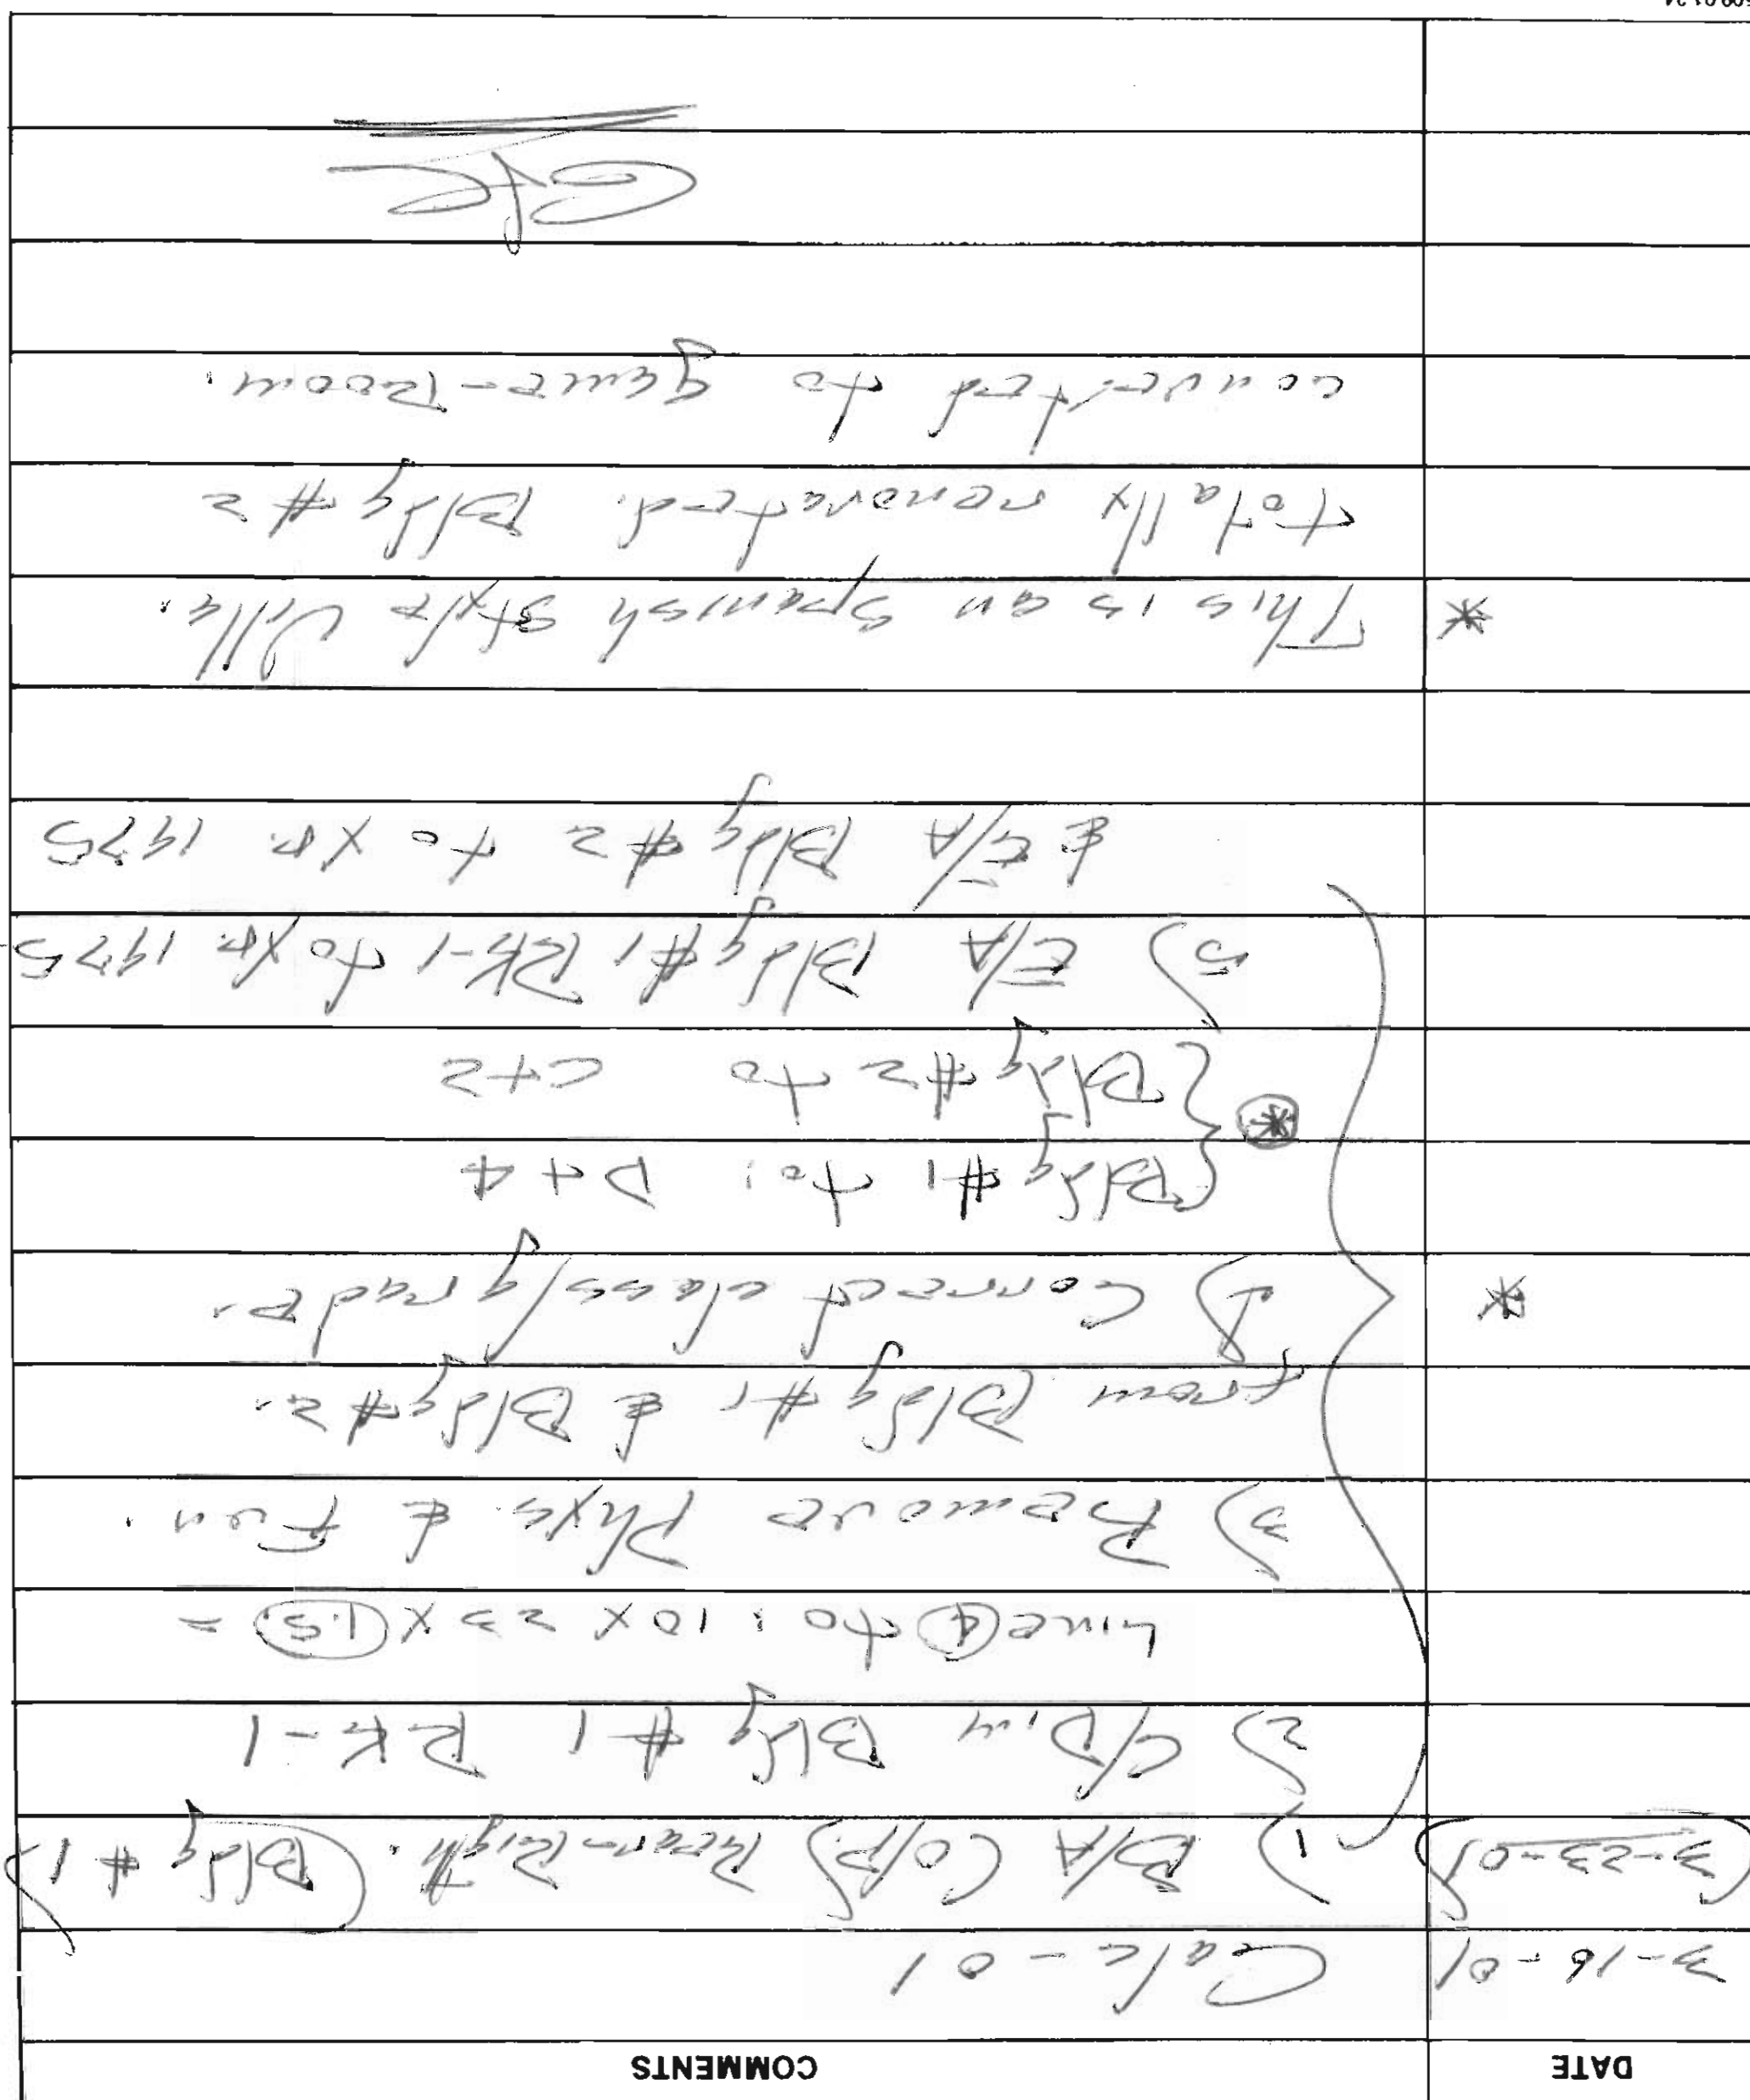 DATE COMMENTS
3-16-01 Calc-01
(3-23-01) 1) B/A (O/P) Rear-Right. (Bldg #1)
2) C/Dim Bldg #1 RK-1
Line (4) to: 10 X 23 X (1.5) =
3) Remove Phys. & Fun.
from Bldg #1 & Bldg #2.
* 4) Correct class/grade.
{Bldg #1 to: D+4
* {Bldg #2 to C+2
5) E/A Bldg #1 RK-1 to yr. 1975
& E/A Bldg #2 to yr. 1975
* This is an Spanish style Villa.
totally renovated. Bldg #2
converted to game-Room.